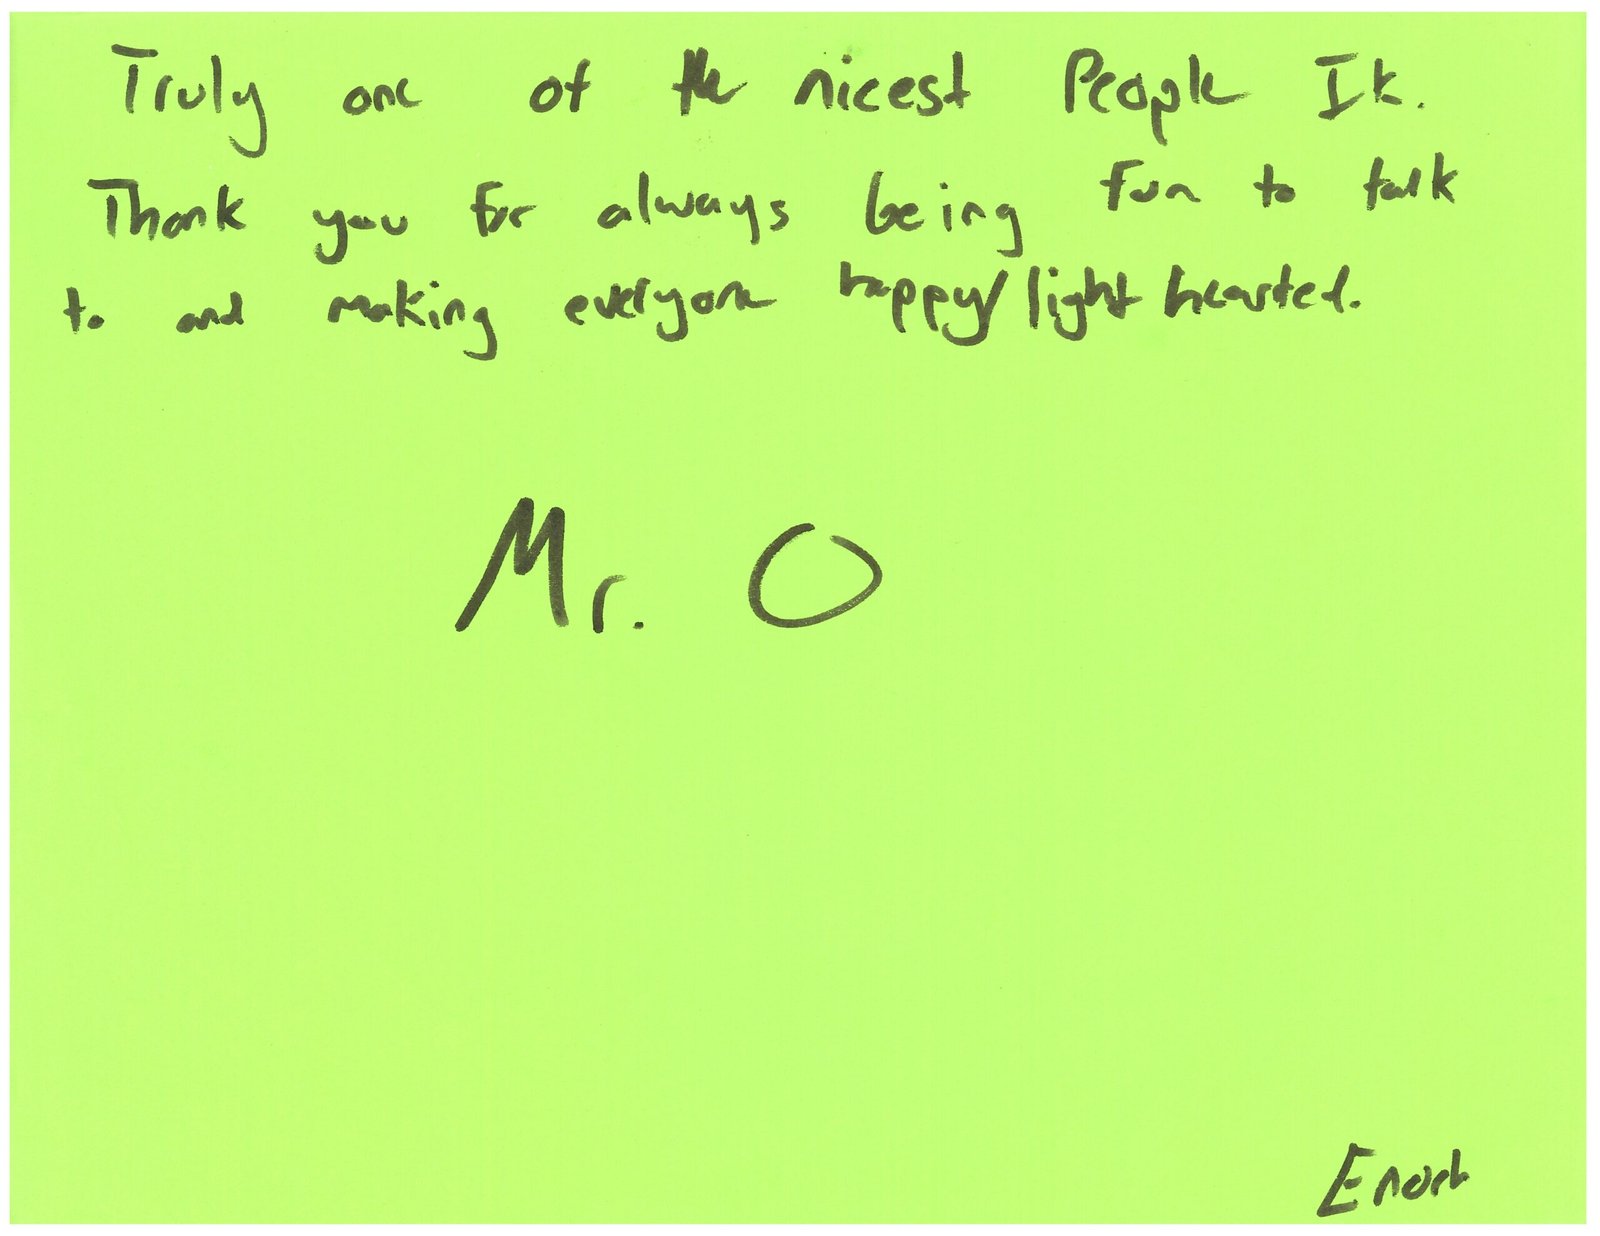 Truly one of the nicest People Ik.
Thank you for always being fun to talk
to and making everyone happy/light hearted.
Mr. O
Enoch